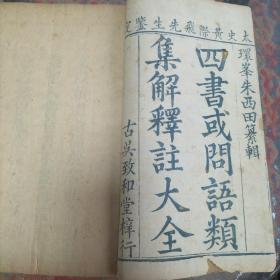 太史黃際飛先生鑒定
環峯朱西田纂輯
四書或問語類
集解釋註大全
古吳致和堂梓行